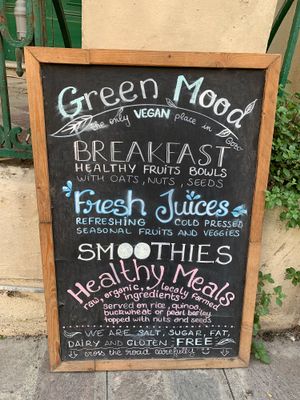 Green Mood
the only VEGAN place in Gozo
BREAKFAST
HEALTHY FRUITS BOWLS
WITH OATS, NUTS, SEEDS
Fresh Juices
REFRESHING COLD PRESSED
SEASONAL FRUITS AND VEGGIES
SMOOTHIES
Healthy Meals
raw, organic, localy farmed
ingredients
served on rice, quinoa,
buckwheat or pearl barley
topped with nuts and seeds
WE ARE SALT, SUGAR, FAT,
DAIRY AND GLUTEN FREE
cross the road carefully